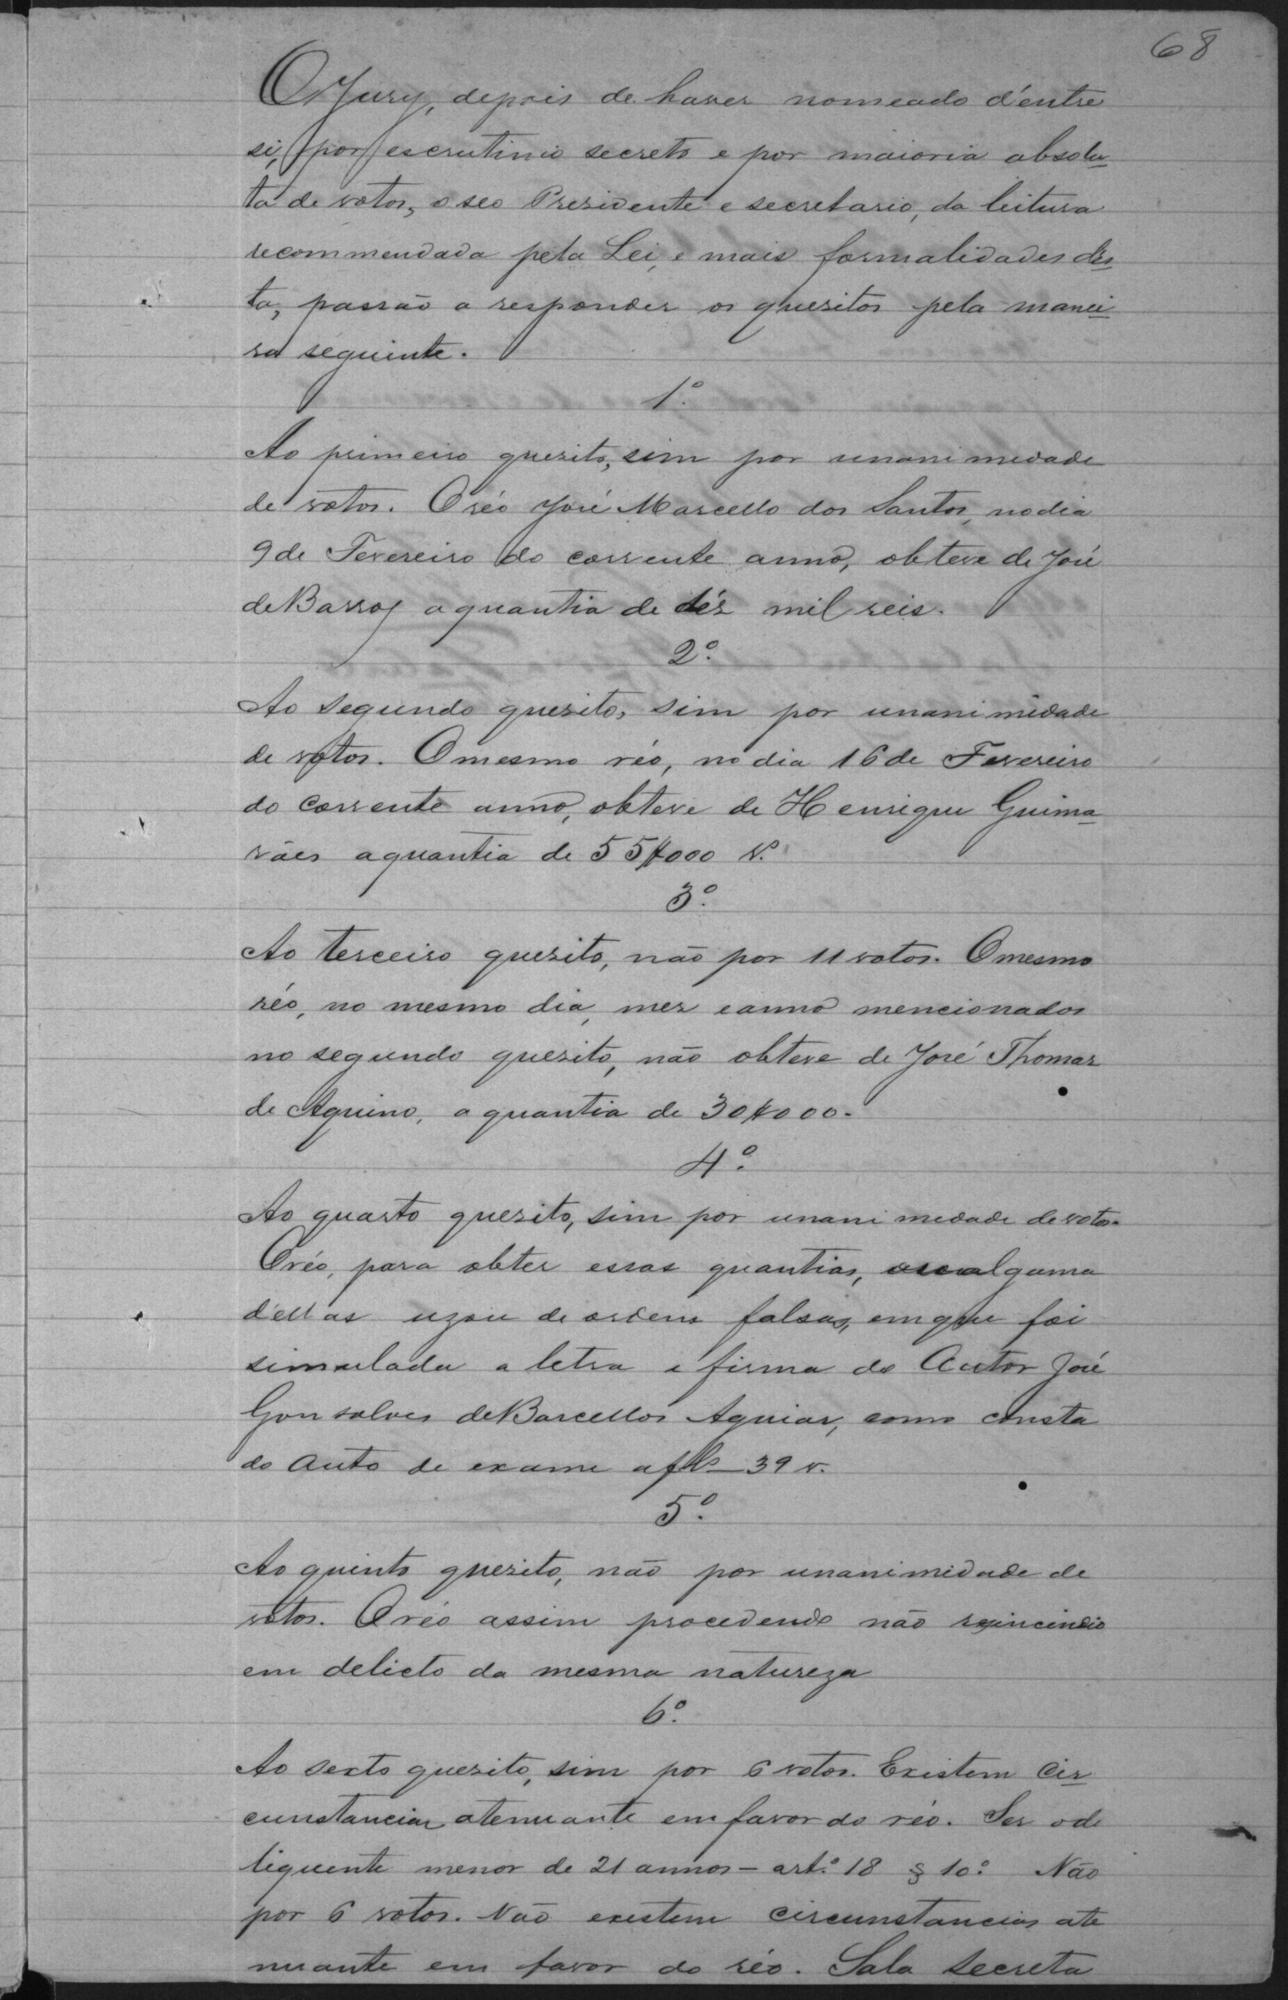 68
O Jury, depois de haver nomeado d'entre
si, por escrutinio secreto e por maioria absolu-
ta de votos, o seo Presidente e secretario, da leitura
recommendada pela Lei, e mais formalidades des-
ta, passão a responder os quesitos pela manei-
ra seguinte.
1º.
Ao primeiro quesito, sim por unanimedade
de votos. O réo José Marcello dos Santos, no dia
9 de Fevereiro do corrente anno, obteve de José
de Barros a quantia de dés mil reis.
2º.
Ao segundo quesito, sim por unanimidade
de votos. O mesmo réo, no dia 16 de Fevereiro
do corrente anno, obteve de Henrique Guima-
rães a quantia de 55$000 r.
3º.
Ao terceiro quesito, não por 11 votos. O mesmo
réo, no mesmo dia, mez e anno mencionados
no segundo quesito, não obteve de José Thomaz
de Aquino, a quantia de 30$000.
4º.
Ao quarto quesito, sim por unanimedade de votos.
O réo, para obter essas quantias, ou alguma
d'ellas uzou de ordens falsas, em que foi
simulada a letra e firma do Autor José
Gonsalves de Barcellos Aguiar, como consta
do auto de exame a fls 39 v.
5º.
Ao quinto quesito, não por unanimidade de
votos. O réo assim procedendo não reincindio
em delicto da mesma natureza
6º.
Ao sexto quesito, sim por 6 votos. Existem cir-
cunstancias atenuante em favor do réo. Ser o de
liquente menor de 21 annos – artº. 18 § 10º. Não
por 6 votos. Não existem circunstancias ate
nuante em favor do réo. Sala Secreta